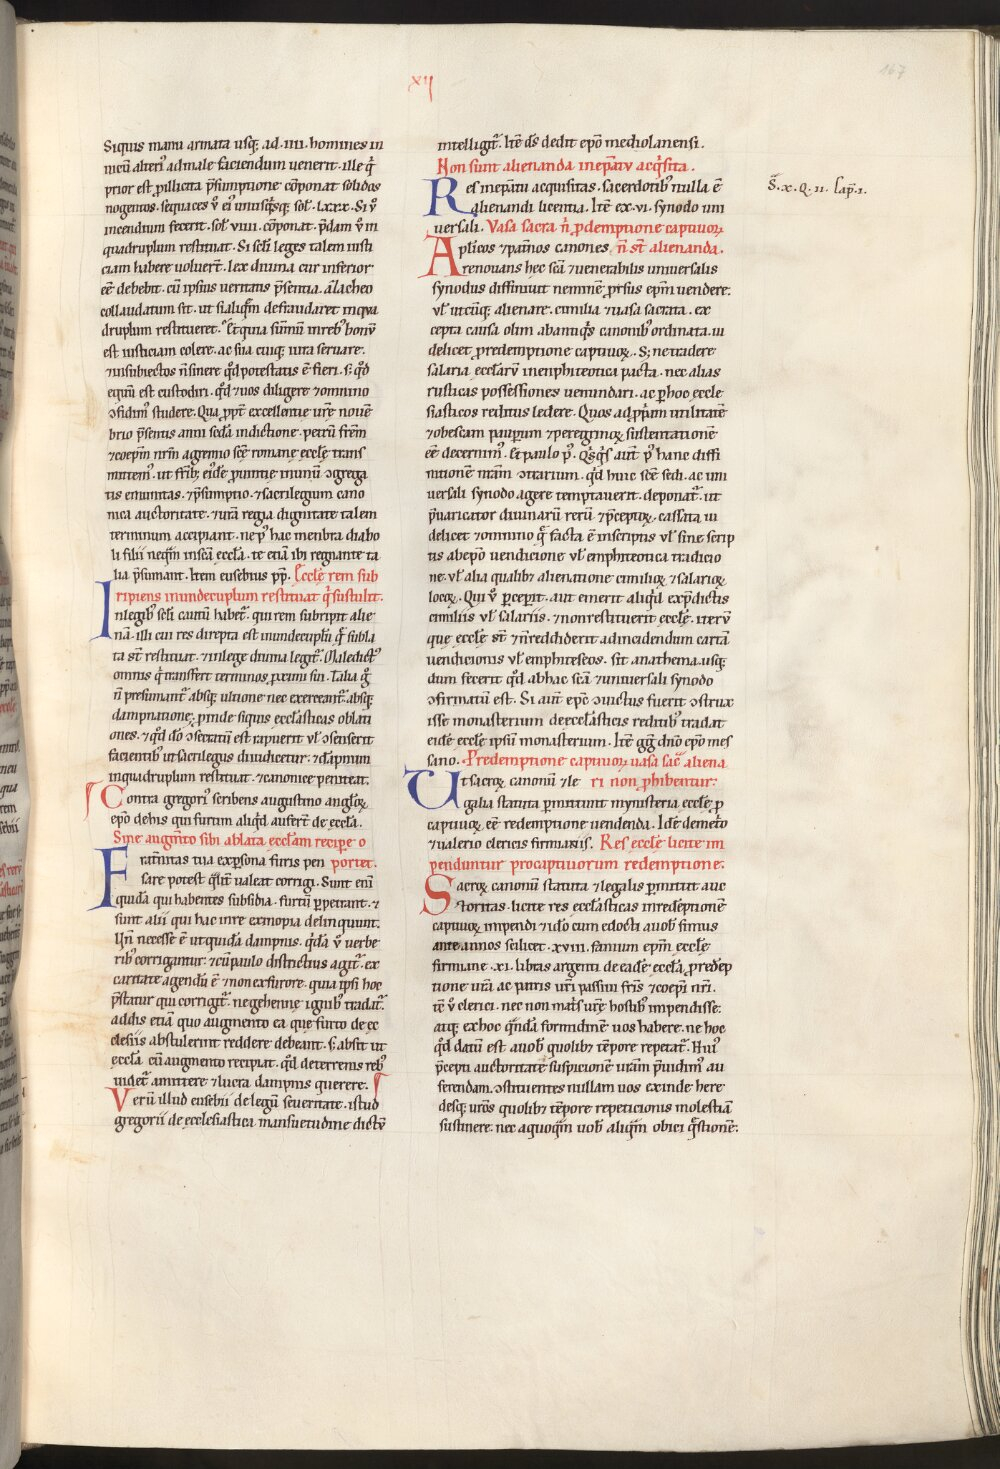 xij
167
Siquis manu armata usq; ad .iiii. homines in
uicū alteri᷒ ad male faciendum uenerit. ille q̇
prior est p illicita p̄sumptione cōponat solidos
nogentos. sequaces ū ei᷒ unusq̄sq; sol̄. lxxx. Si ū
incendium fecerit. sol̄. viiii. cōponat. p̄dam ū in
quadruplum restituat. Si sc̄li leges talem iusti
ciam habere uoluer̄t. lex diuina cur inferior
eē debebit. cū ipsius ueritatis p̄sentia. a zacheo
collaudatum sit. ut si aliq̄m defraudaret in qua
druplum restitueret. Et quia sūmū in reb᷒ bonū
est iusticiam colere. ac sua cuiq; iura seruare.
⁊ in subiectos n̄ sinere qd̄ potestatis ē fieri. s; qd̄
equū est custodiri. qd̄ ⁊ uos diligere ⁊ omnino
ɔfidim᷒ studere. Qua ppt̄ excellentie ur̄e nouē
brio p̄sentis anni sc̄da indictione. petrū fr̄em
⁊ coep̄m nr̄m a gremio sc̄e romane eccl̄ę trans
mittem᷒. ut fr̄ib; ei᷒dē puintię in unū ɔgrega
tis
nica auctoritate. ⁊ ur̄a regia dignitate talem
terminum accipiant. ne p᷒ hac membra diabo
li filii nequā in sc̄a eccl̄a. te etiā ibi regnante ta
lia p̄sumant. Item eusebius pp̄. Eccl̄ę rem sub
ripiens in undecuplum restituat q̇ sustulit.
In legib᷒ sc̄li cautū habet̄. qui rem subripit alie
nā. illi cui res direpta est in undecuplū q̄ subla
ta st̄ restituat. ⁊ in lege diuina legit̄. Maledict᷒
omnis q̇ transfert terminos pximi sui. Talia g̊
n̄ presumant̄ absq; ultione nec exerceant̄ absq;
dampnatione. pinde siquis eccl̄asticas oblati
ones. ⁊ qd̄ dō ɔsecratū est rapuerit ul̄ ɔsenserit
facientib᷒ ut sacrilegus diiudicetur. ⁊ dāpnum
in quadruplum restituat. ⁊ canonice peniteat.
Contra gregori᷒ scribens augustino angloꝝ
epō de his qui furtum aliqd̄ aufert̄ de eccl̄a.
Sine augm̄to sibi ablata eccl̄am recipe o
portet.
Frat̄nitas tua ex psona furis pen
sare potest q̄lit̄ ualeat corrigi. Sunt eni᷒
quidā qui habentes subsidia. furtū ppetrant. ⁊
sunt alii qui hac in re ex inopia delinquunt.
Un̄ necesse ē ut quidā dampnis. q̄dā ū uerbe
rib᷒ corrigantur. ⁊ cū paulo districtius agit̄. ex
caritate agendū ē ⁊ non ex furore. quia ipsi hoc
p̄statur qui corrigit̄. ne gehenne ignib᷒ tradat̄.
addis etiā quo augmento ea que furto de ec
clesiis abstulerint reddere debeant. s; absit ut
eccl̄a cū augmento recipiat. qd̄ de terrenis reb᷒
uidet̄ amittere ⁊ lucra dampnis querere.
Verū illud eusebii de legū seueritate. istud
gregorii de ecclesiastica mansuetudine dictū
intelligit̄. Itē d̄s dedit epō mediolanensi.
Non sunt alienanda in ep̄atu acq̇sita.
Res in ep̄atu acquisitas. sacerdotib᷒ nulla ē
alienandi licentia. Itē ex .vi. synodo uni
uersali. Vasa sacra n̄ p redemptione captiuoꝝ
n̄ st̄ alienanda.
Ap̄licos ⁊ pat̄nos canones
renouans hec sc̄a ⁊ uenerabilis uniuersalis
synodus diffiniuit neminē p̄rsus ep̄m uendere.
ul̄ utcūq; alienare. cimilia ⁊ uasa sacrata. ex
cepta causa olim ab antiq̇s canonib᷒ ordinata. ui
delicet p redemptione captiuoꝝ. S; ne tradere
salaria eccl̄arū in enphiteotica pacta. nec alias
rusticas possessiones uenundari. ac p hoc eccle
siasticos reditus ledere. Quos ad p̄priam utilitatē
⁊ ob escam paupum ⁊ peregrinoꝝ sustentationē
eē decernim᷒. Et paulo p᷒. Q̇sq̇s aut̄ p᷒ hanc diffi
nitionē nr̄am ɔtrarium. qd̄ huic sc̄e sedi. ac uni
uersali synodo agere temptauerit. deponat̄. ut
p̄uaricator diuinarū rerū ⁊ p̄ceptoꝝ. cassata ui
delicet ⁊ omnino q̄ facta ē in scriptis ul̄ sine scrip
tis ab epō uendicione ul̄ emphiteotica tradicio
ne. ul̄ alia qualib; alienatione cimilioꝝ ⁊ salarioꝝ
locoꝝ. Qui ū pceperit. aut emerit aliqd̄ ex p̄dictis
cimiliis ul̄ salariis. ⁊ non restituerit eccl̄ę. iterū
que eccl̄ę st̄ ⁊ n̄ reddiderit ad incidendum cartā
uendicionis ul̄ emphiteseos. sit anathema. usq;
dum fecerit qd̄ ab hac sc̄a ⁊ uniuersali synodo
ɔfirmatū est. Si aut̄ ep̄c ɔuictus fuerit ɔstrux
isse monasterium de eccl̄asticis reditib᷒ tradat
eidē eccl̄ę ipsū monasterium. Itē gg̅ dn̄o epō mes
sano. Predemptione captiuoꝝ uasa sac̄ aliena
ri non phibentur.
Ut sacroꝝ canonū ⁊ le
galia statuta pmittunt mynisteria eccl̄ę p
captiuoꝝ eē redemptione uendenda. Idē demet̄o
⁊ ualerio clericis firmanis. Res eccl̄ę licite im
penduntur pro captiuorum redemptione.
Sacroꝝ canonū statuta ⁊ legalis pmittit auc
toritas. licite res eccl̄asticas in redēptionē
captiuoꝝ impendi ⁊ idō cum edocti a uob᷒ simus
ante annos scilicet. xviii. fanium ep̄m eccl̄ę
firmane .xi. libras argenti de eadē eccl̄a p redēp
tione ur̄a ac patris ur̄i passiui fr̄is ⁊ coep̄i nr̄i.
tē ū clerici. nec non mat̄s ur̄ę hostib᷒ impendisse.
atq; ex hoc q̄ndā formidinē uos habere. ne hoc
qd̄ datū est a uob᷒ quolib; tēpore repetat̄. Hui᷒
p̄cepti auctoritate suspicionē ur̄am p̄uidim᷒ au
ferendam. ɔstituentes nullam uos exinde here
desq; ur̄os quolib; tēpore repeticionis molestiā
sustinere. nec a quoq̄m uob᷒ aliq̄m obici q̄stionē.
S̄. x. Q. ii. Cap̄. i.